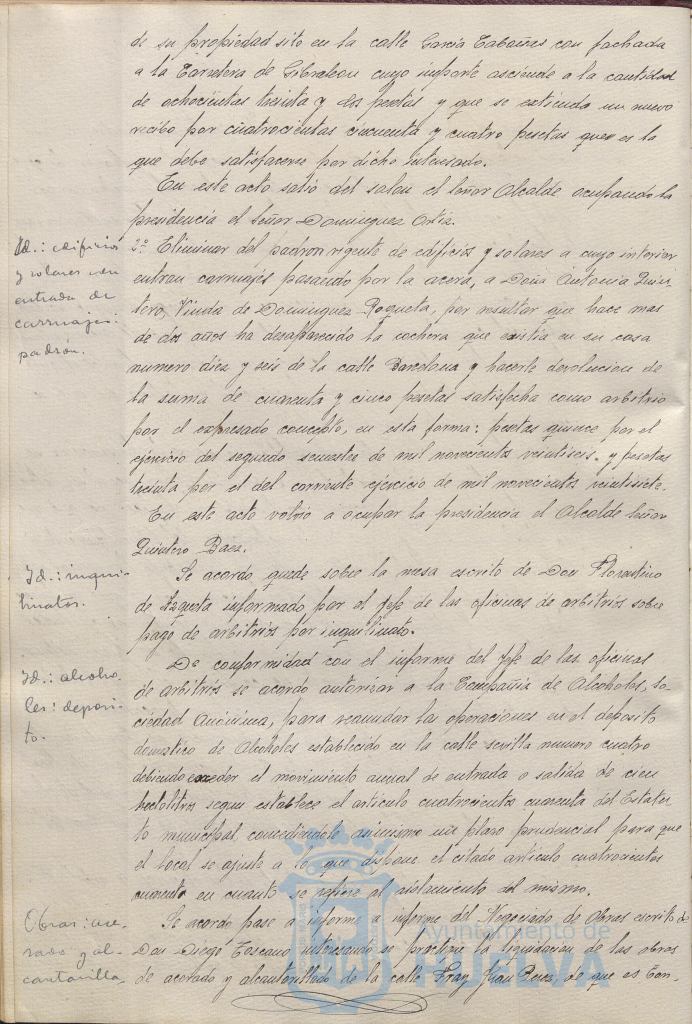 de su propiedad sito en la calle Garcia Cabañas con fachada
a la Carretera de Gibraleon cuyo importe asciende a la cantidad
de ochocientas treinta y dos pesetas y que se extienda un nuevo
recibo por cuatrocientas cincuenta y cuatro pesetas que es lo
que debe satisfacerse por dicho interesado.
En este acto salió del salon el Señor Alcalde ocupando la
presidencia el Señor Dominguez Ortiz.
Id.: edificios
y solares con
entrada de
carruajes:
padrón.
2º Eliminar del padron vigente de edificios y solares a cuyo interior
entran carruajes pasando por la acera, a Doña Antonia Quin
tero, Viuda de Dominguez Roqueta, por resultar que hace mas
de dos años ha desaparecido la cochera que existia en su casa
numero diez y seis de la calle Barcelona y hacerle devolucion de
la suma de cuarenta y cinco pesetas satisfecha como arbitrio
por el expresado concepto, en esta forma: pesetas quince por el
ejercicio del segundo semestre de mil novecientos veintiseis y pesetas
treinta por el del corriente ejercicio de mil novecientos veintisiete.
En este acto volvio a ocupar la presidencia el Alcalde Señor
Quintero Baez.
Id.: inqui-
linatos.
Se acordo quede sobre la mesa escrito de Don Florentino
de Azqueta informado por el Jefe de las oficinas de arbitrios sobre
pago de arbitrios por inquilinato.
Id.: alcoho
les: deposi-
to.
De conformidad con el informe del Jefe de las oficinas
de arbitrios se acordo autorizar a la Compañia de Alcoholes, so
ciedad Anónima, para reanudar las operaciones en el deposito
domestico de Alcoholes establecido en la calle sevilla numero cuatro
debiendo exceder el movimiento anual de entrada o salida de cien
hectolitros segun establece el articulo cuatrocientos cuarenta del Estatu
to municipal concediendole asimismo un plazo prudencial para que
el local se ajuste a lo que dispone el citado articulo cuatrocientos
cuarenta en cuanto se refiere al aislamiento del mismo.
Obras: ace-
rado y al-
cantarilla
Se acordo pase a informe a informe del Negociado de Obras escrito de
Don Diego Toscano interesando se practique la liquidacion de las obras
de acerado y alcantarillado de la calle Fray Juan Perez, de que es Con-
Ayuntamiento de
HUELVA